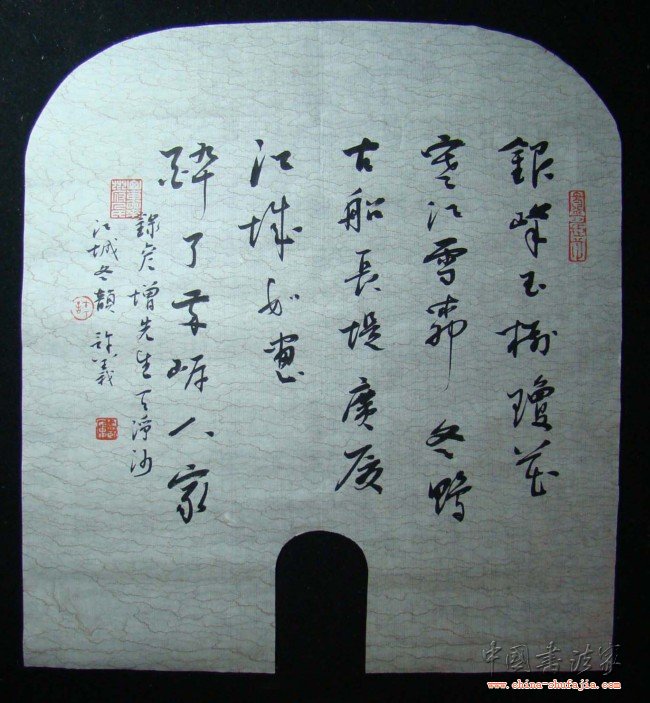 銀峰玉樹瓊花
寒江雪冬鴨
古船長堤廣廈
江城如畫
醉了兩岸人家
錄增先生天淨沙
江城冬韻 許義
中國書法家
www.china-shufajia.com